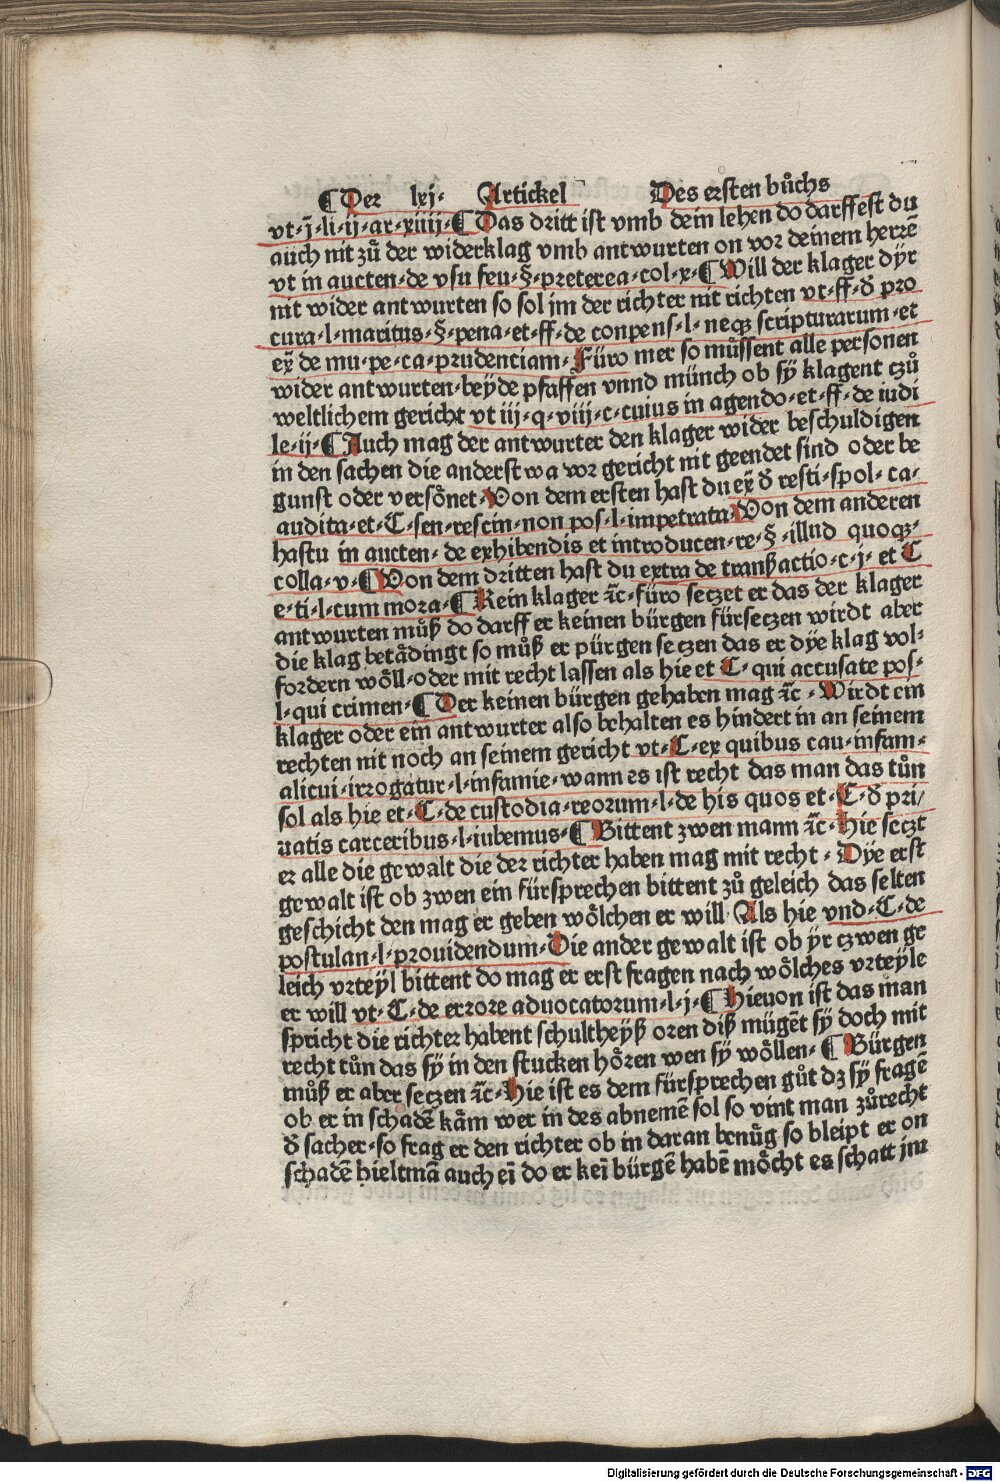 ¶Der lxj· Artickel Des ersten bůchs
vt·j̄·li·ij·ar·xiiij·¶Das dritt ist vmb dein lehen do darffest du
auch nit zů der widerklag vmb antwurten on vor deinem herrē
vt in aucten·de vsu feu·§·preterea·col·x·¶Will der klager dyr
nit wider antwurten so sol jm der richter nit richten vt·ff·đ pro
cura·l·maritus·§·pena·et·ff·de conpens·l·neqꝫ scripturarum·et
ex̄ de mu·pe·ca·prudenciam·Füro mer so můssent alle personen
wider antwurten·beyde pfaffen vnnd münch ob sy klagent czů
weltlichem gericht vt iij·q·viij·c·cuius in agendo·et·ff·de iudi
le·ij·¶Auch mag der antwurter den klager wider beschuldigen
in den sachen die anderstwa vor gericht nit geendet sind oder be
gunst oder versônet·Von dem ersten hast du ex̄ đ resti·spol·ca·
audita·et·C·sen·rescin·non pos·l·impetrata·Von dem anderen
hastu in aucten·de exhibendis et introducen·re·§·illud quoqꝫ·
colla·v·¶Von dem dritten hast du extra de tranßactio·c·j·et C
e·ti·l·cum mora·¶Kein klager ꝛc·füro seczet er das der klager
antwurten můß do darff er keinen bürgen fürseczen wirdt aber
die klag betådingt so můß er pürgen seczen das er dye klag vol·
fordern wôll·oder mit recht lassen als hie et C·qui accusate pos·
l·qui crimen·¶Der keinen bürgen gehaben mag ꝛc·Wirdt ein
klager oder ein antwurter also behalten es hindert in an seinem
rechten nit noch an seinem gericht vt·C·ex quibus cau·infam·
alicui·irrogatur·l·infamie·wann es ist recht das man das tůn
sol als hie et·C·de custodia·reorum·l·de his quos et·C·đ pri/
uatis carceribus·l·iubemus·¶Bittent zwen mann ꝛc·Hie seczt
er alle die gewalt die der richter haben mag mit recht·Dye erst
gewalt ist ob zwen ein fürsprechen bittent zů geleich das selten
geschicht den mag er geben wôlchen er will·Als hie vnd·C·de
postulan·l·prouidendum·Die ander gewalt ist ob yr czwen ge
leich vrteyl bittent do mag er erst fragen nach wôlches vrteyle
er will vt·C·de errore aduocatorum·l·j·¶Hieuon ist das man
spricht die richter habent schultheyß oren diß mügēt sy doch mit
recht tůn das sy in den stucken hôren wen sy wôllen·¶Bürgen
můß er aber seczen ꝛc·Hie ist es dem fürsprechen gůt dꝫ sy fragē
ob er in schadē kåm wer in des abnemē sol so vint man zůrecht
đ sacher·so frag er den richter ob in daran benůg so bleipt er on
schadē hieltmā auch eī do er keī bürgē habē môcht es schatt jm
Digitalisierung gefördert durch die Deutsche Forschungsgemeinschaft - DFG